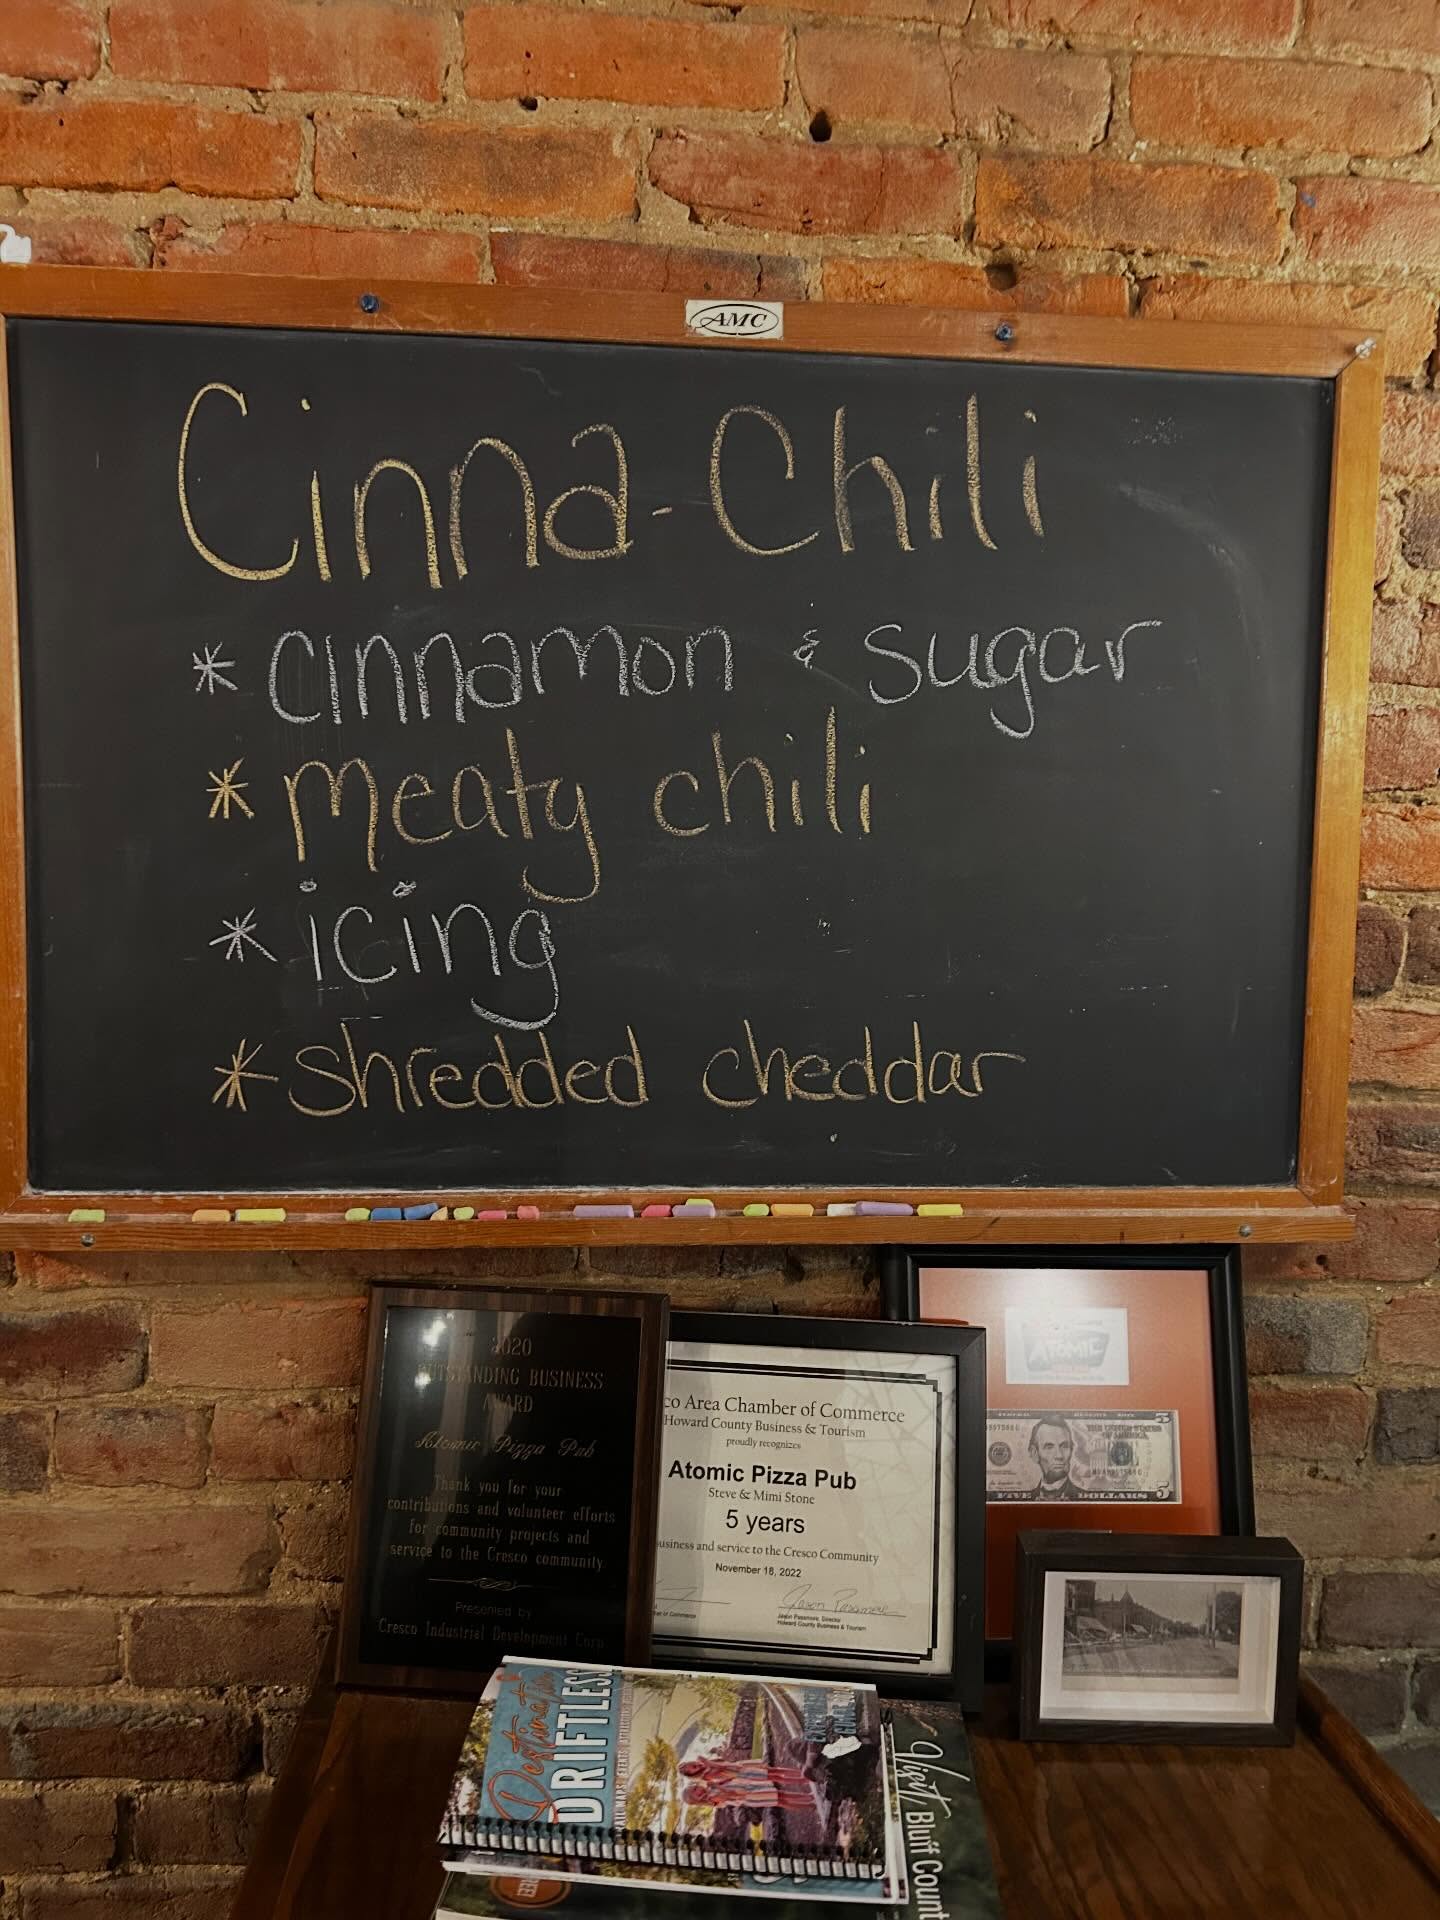 AMC
Cinna-Chili
* cinnamon & sugar
* meaty chili
* icing
* shredded cheddar
2020
OUTSTANDING BUSINESS
AWARD
Atomic Pizza Pub
Thank you for your
contributions and volunteer efforts
for community projects and
service to the Cresco community
Presented by
Cresco Industrial Development Corp.
co Area Chamber of Commerce
Howard County Business & Tourism
proudly recognizes
Atomic Pizza Pub
Steve & Mimi Stone
5 years
business and service to the Cresco Community
November 18, 2022
Jason Passmore
Jason Passmore, Director
Howard County Business & Tourism
of Commerce
ATOMIC
5
THE UNITED STATES
OF AMERICA
FIVE DOLLARS 5
Destination
DRIFTLESS
Visit Bluff Count